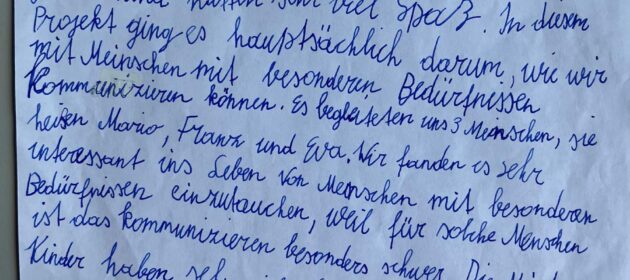 hatten sehr viel Spaß. In diesem
Projekt ging es hauptsächlich darum, wie wir
mit Meinschen mit besonderen Bedürfnissen
Kommunizieren können. Es begleiteten uns 3 Meinschen, sie
heißen Mario, Franz und Eva. Wir fanden es sehr
interessant ins Leben von Menschen mit besonderen
Bedürfnissen einzutauchen, weil für solche Menschen
ist das kommunizieren besonders schwer. Die
Kinder haben